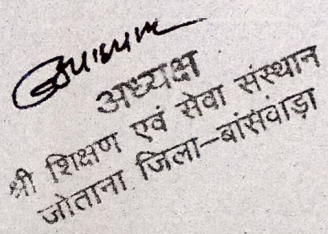 अध्यक्ष
श्री शिक्षण एवं सेवा संस्थान
जोताना जिला-बांसवाड़ा